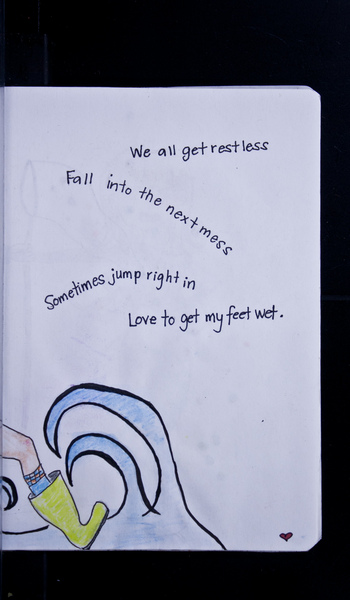 We all get restless
Fall into the next mess
Sometimes jump right in
Love to get my feet wet.